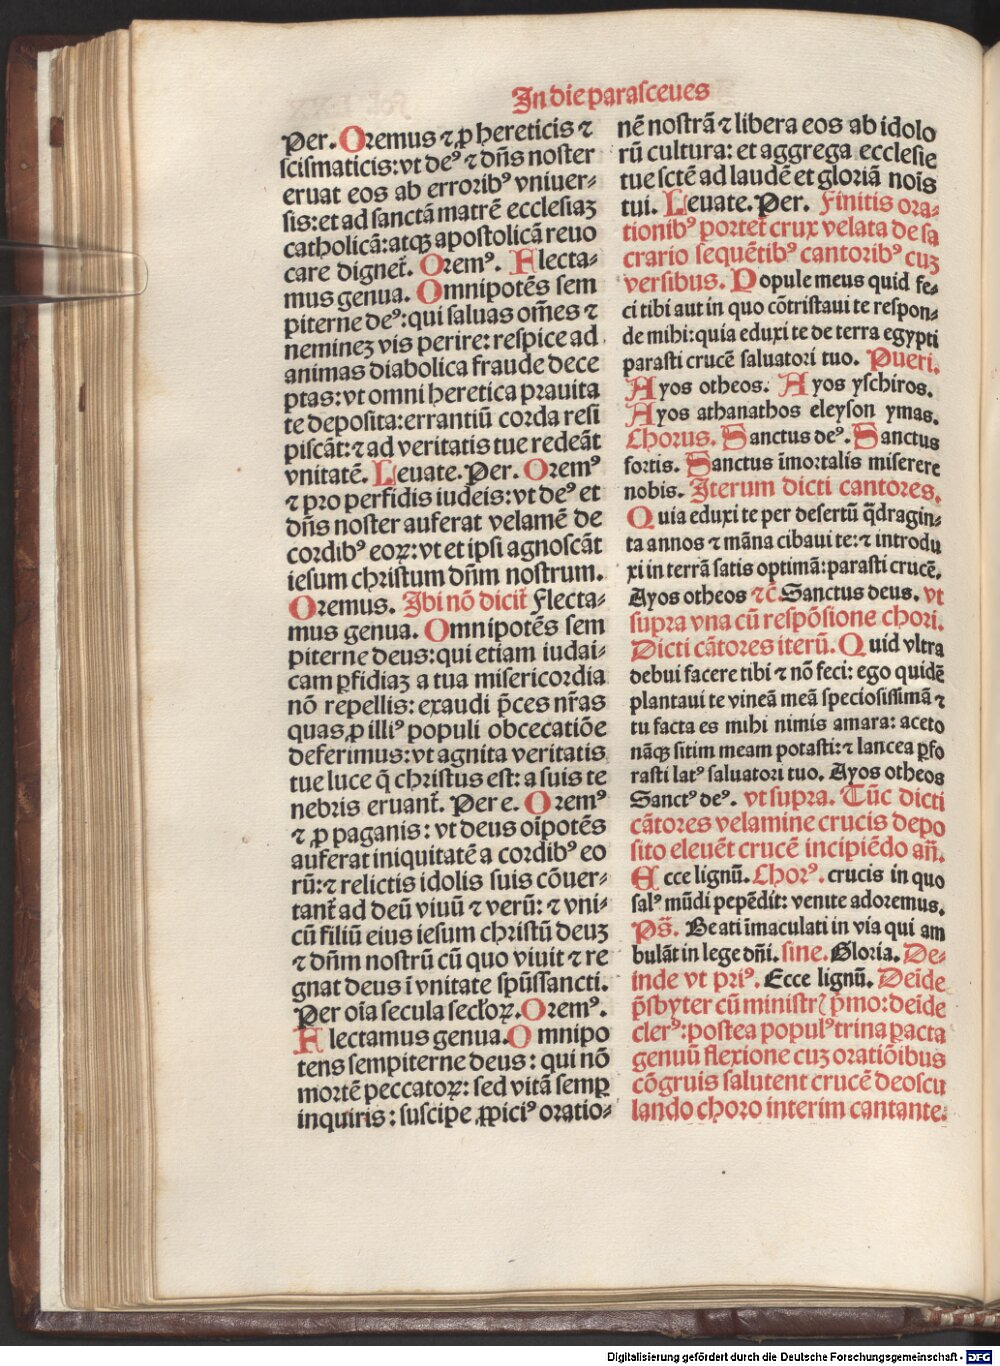 In die parasceues
Per. Oremus ⁊ ꝓ hereticis ⁊
scismaticis: vt deꝰ ⁊ dñs noster
eruat eos ab erroribꝰ vniuer⸗
sis: et ad sanctã matrẽ ecclesiaꝫ
catholicã: atqꝫ apostolicã reuo
care dignet᷑. Oremꝰ. Flecta⸗
mus genua. Omnipotẽs sem
piterne deꝰ: qui saluas om̃es ⁊
nemineꝫ vis perire: respice ad
animas diabolica fraude dece
ptas: vt omni heretica prauita
te deposita: errantiũ corda resi
piscãt: ⁊ ad veritatis tue redeãt
vnitatẽ. Leuate. Per. Oremꝰ
⁊ pro perfidis iudeis: vt deꝰ et
dñs noster auferat velamẽ de
cordibꝰ eoꝝ: vt et ipsi agnoscãt
iesum christum dñm nostrum.
Oremus. Ibi nõ dicit᷑ Flecta⸗
mus genua. Omnipotẽs sem
piterne deus: qui etiam iudai⸗
cam ꝑfidiaꝫ a tua misericordia
nõ repellis: exaudi p̃ces nr̃as
quas ꝓ illiꝰ populi obcecatiõe
deferimus: vt agnita veritatis
tue luce q̃ christus est: a suis te
nebris eruant᷑. Per e. Oremꝰ
⁊ ꝓ paganis: vt deus oĩpotẽs
auferat iniquitatẽ a cordibꝰ eo
rũ: ⁊ relictis idolis suis cõuer⸗
tant᷑ ad deũ viuũ ⁊ verũ: ⁊ vni⸗
cũ filiũ eius iesum christũ deuꝫ
⁊ dñm nostrũ cũ quo viuit ⁊ re
gnat deus ĩ vnitate spũssancti.
Per oĩa secula secl̃oꝝ. Oremꝰ.
Flectamus genua. Omnipo
tens sempiterne deus: qui nõ
mortẽ peccatoꝝ: sed vitã semꝑ
inquiris: suscipe ꝓpiciꝰ oratio⸗
nẽ nostrã ⁊ libera eos ab idolo
rũ cultura: et aggrega ecclesie
tue sctẽ ad laudẽ et gloriã noĩs
tui. Leuate. Per. Finitis ora⸗
tionibꝰ portet᷑ crux velata de sa
crario sequẽtibꝰ cantoribꝰ cuꝫ
versibus. Popule meus quid fe⸗
ci tibi aut in quo cõtristaui te respon⸗
de mihi: quia eduxi te de terra egypti
parasti crucẽ saluatori tuo. Pueri.
Ayos otheos. Ayos yschiros.
Ayos athanathos eleyson ymas.
Chorus. Sanctus deꝰ. Sanctus
fortis. Sanctus ĩmortalis miserere
nobis. Iterum dicti cantores.
Quia eduxi te per desertũ q̃dragin⸗
ta annos ⁊ mãna cibaui te: ⁊ introdu
xi in terrã satis optimã: parasti crucẽ.
Ayos otheos ⁊c̃. Sanctus deus. vt
supra vna cũ respõsione chori.
Dicti cãtores iterũ. Quid vltra
debui facere tibi ⁊ nõ feci: ego quidẽ
plantaui te vineã meã speciosissimã ⁊
tu facta es mihi nimis amara: aceto
nãqꝫ sitim meam potasti: ⁊ lancea ꝑfo
rasti latꝰ saluatori tuo. Ayos otheos
Sanctꝰ deꝰ. vt supra. Tũc dicti
cãtores velamine crucis depo
sito eleuẽt crucẽ incipiẽdo añ.
Ecce lignũ. Chorꝰ. crucis in quo
salꝰ mũdi pepẽdit: venite adoremus.
Ps̃. Beati ĩmaculati in via qui am
bulãt in lege dñi. sine. Gloria. De⸗
inde vt priꝰ. Ecce lignũ. Deĩde
p̃sbyter cũ ministrꝭ p̃mo: deĩde
clerꝰ: postea populꝰ trina ꝑacta
genuũ flexione cuꝫ oratiõibus
cõgruis salutent crucẽ deoscu
lando choro interim cantante.
Digitalisierung gefördert durch die Deutsche Forschungsgemeinschaft - DFG